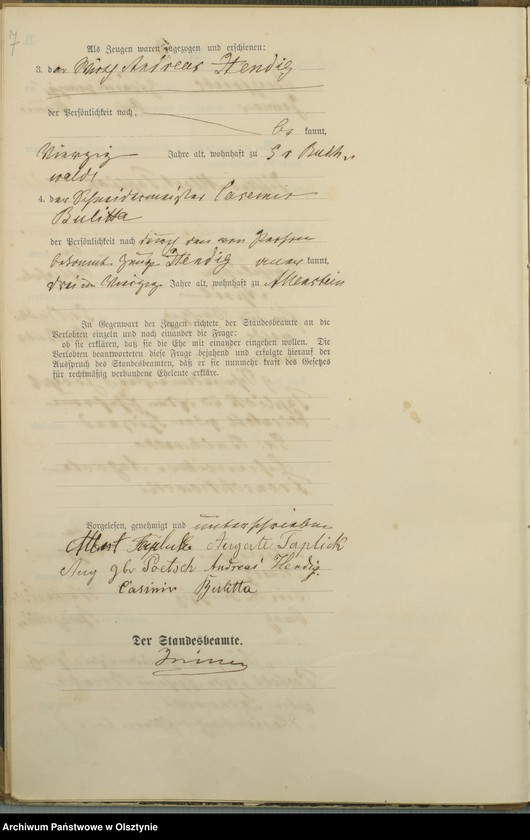 7
Als Zeugen waren zugezogen und erschienen:
3. der Wirth Andreas Hendig
der Persönlichkeit nach,
be kannt,
vierzig Jahre alt, wohnhaft zu Gr Buch-
wald
4. der Schneidermeister Casemir
Bulitta
der Persönlichkeit nach durch den von Person
bekannten Zeugen Hendig aner kannt,
dreiundvierzig Jahre alt, wohnhaft zu Allenstein
In Gegenwart der Zeugen richtete der Standesbeamte an die
Verlobten einzeln und nach einander die Frage:
ob sie erklären, daß sie die Ehe mit einander eingehen wollen. Die
Verlobten beantworteten diese Frage bejahend und erfolgte hierauf der
Ausspruch des Standesbeamten, daß er sie nunmehr kraft des Gesetzes
für rechtmäßig verbundene Eheleute erkläre.
Vorgelesen, genehmigt und unterschrieben
Albert Taplick
geb Poetsch Andreas Hendig
Casimir Bulitta
Der Standesbeamte.
Archiwum Państwowe w Olsztynie